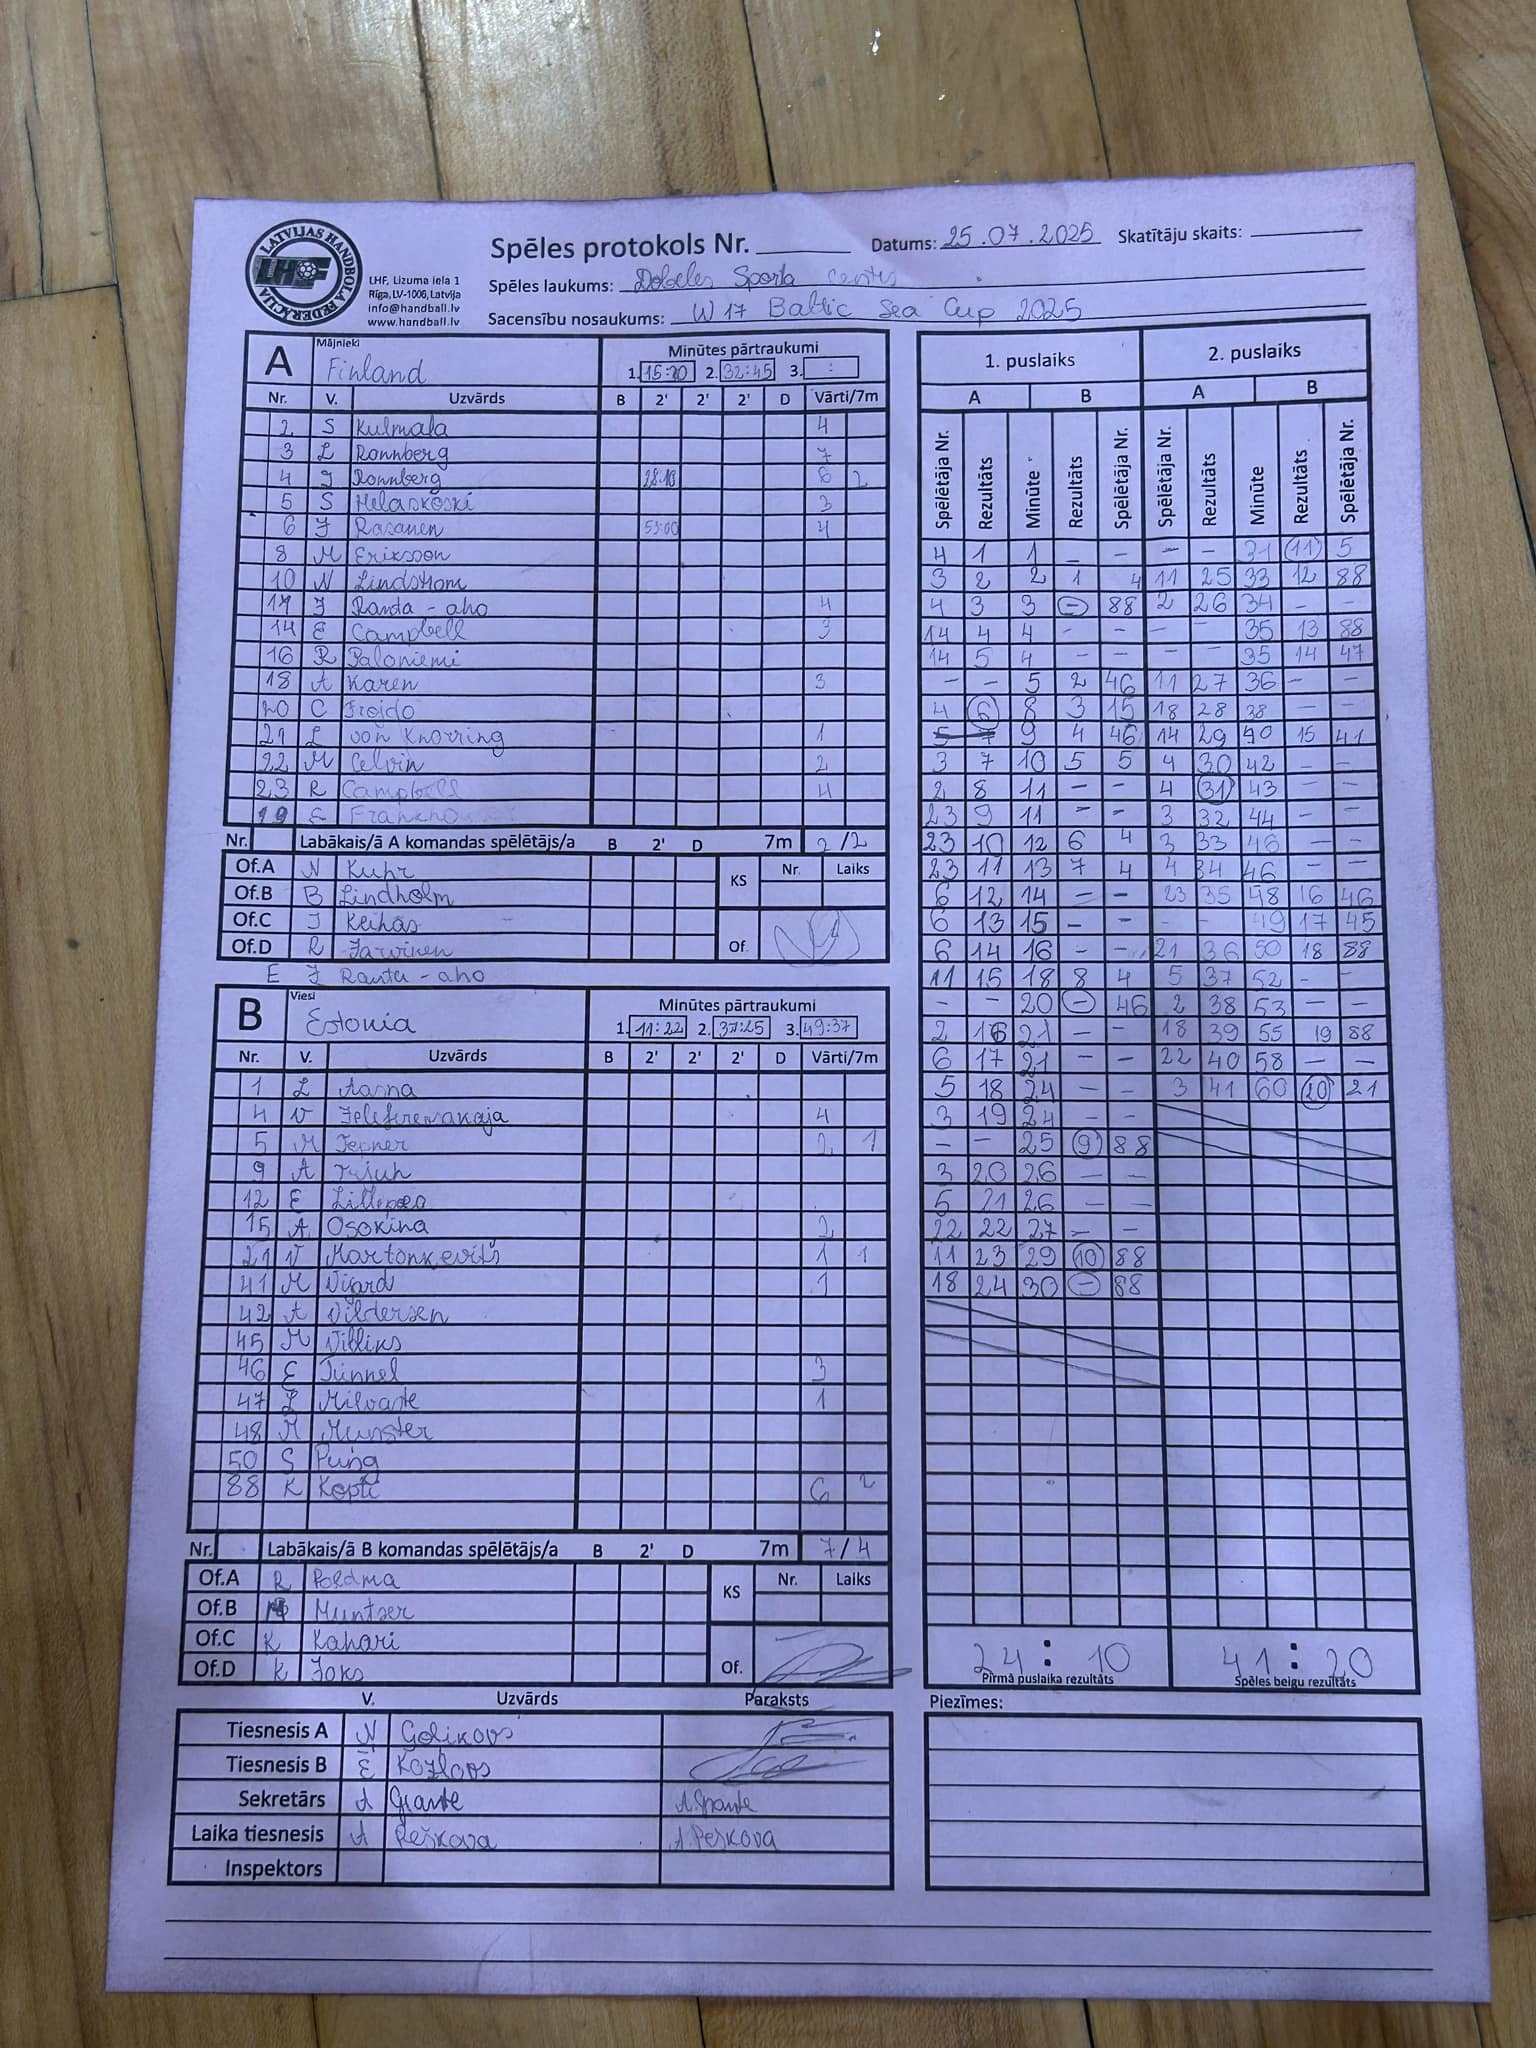 LATVIJAS HANDBOLA FEDERĀCIJA
LHF
LHF, Lizuma iela 1
Rīga, LV-1006, Latvija
info@handball.lv
www.handball.lv
Spēles protokols Nr. Datums: 25.07.2025 Skatītāju skaits:
Spēles laukums: Dobeles Sporta
Sacensību nosaukums: W17 Baltic Sea Cup 2025
A Mājnieki Finland Minūtes pārtraukumi
1. 2. 32:45 3. :
Nr. V. Uzvārds B 2' 2' 2' D Vārti/7m
2 S Kulmala 4
3 L Ronnberg 7
4 J Ronnberg 6 2
5 S Helaskoski 3
6 J Rasanen 4
8 M Eriksson
10 N Lindstrom
J Ranta-aho 4
14 E Campbell 3
16 R Paloniemi
18 A Karen 3
20 C Frojdo
21 L von Knorring 1
22 M Celvin 2
23 R Campbell 4
19 E
Nr. Labākais/ā A komandas spēlētājs/a B 2' D 7m 2/2
Of.A N Kuhr KS Nr. Laiks
Of.B B Lindholm
Of.C J Keihas Of.
Of.D R Jarvinen
E J Ranta-aho
B Viesi Estonia Minūtes pārtraukumi
1. 11:22 2. 37:25 3. 49:37
Nr. V. Uzvārds B 2' 2' 2' D Vārti/7m
1 L Aasna
4 V 4
5 M Tepner 2 1
9 A
12 E
15 A Osokina 2
21 V 1 1
41 M Vigard 1
42 A Vildersen
45 M
46 E Tünnel 3
47 L Milvaste 1
48 M Munster
50 S Pung
88 K Kopti 6 2
Nr. Labākais/ā B komandas spēlētājs/a B 2' D 7m 7/4
Of.A R Poldma KS Nr. Laiks
Of.B Muntser
Of.C K Kahari Of.
Of.D K Joks
V. Uzvārds Paraksts
Tiesnesis A N Golikovs
Tiesnesis B Ē Kozlovs
Sekretārs A Grante A.Grante
Laika tiesnesis A Peškova A.Peškova
Inspektors
1. puslaiks 2. puslaiks
A B A B
Spēlētāja Nr. Rezultāts Minūte Rezultāts Spēlētāja Nr. Spēlētāja Nr. Rezultāts Minūte Rezultāts Spēlētāja Nr.
4 1 1 - - - - 31 11 5
3 2 2 1 4 11 25 33 12 88
4 3 3 - 88 2 26 34 - -
14 4 4 - - - - 35 13 88
14 5 4 - - - - 35 14 47
- - 5 2 46 11 27 36 - -
4 6 8 3 15 18 28 38 - -
5 7 9 4 46 14 29 40 15 41
3 7 10 5 5 4 30 42 - -
2 8 11 - - 4 31 43 - -
23 9 11 - - 3 32 44 - -
23 10 12 6 4 3 33 46 - -
23 11 13 7 4 4 34 46 - -
6 12 14 - - 23 35 48 16 46
6 13 15 - - - - 49 17 45
6 14 16 - - 21 36 50 18 88
11 15 18 8 4 5 37 52 - -
- - 20 - 46 2 38 53 - -
2 16 21 - - 18 39 55 19 88
6 17 21 - - 22 40 58 - -
5 18 24 - - 3 41 60 20 21
3 19 24 - -
- - 25 9 88
3 20 26 - -
5 21 26 - -
22 22 27 - -
11 23 29 10 88
18 24 30 - 88
24 : 10 41 : 20
Pirmā puslaika rezultāts Spēles beigu rezultāts
Piezīmes: